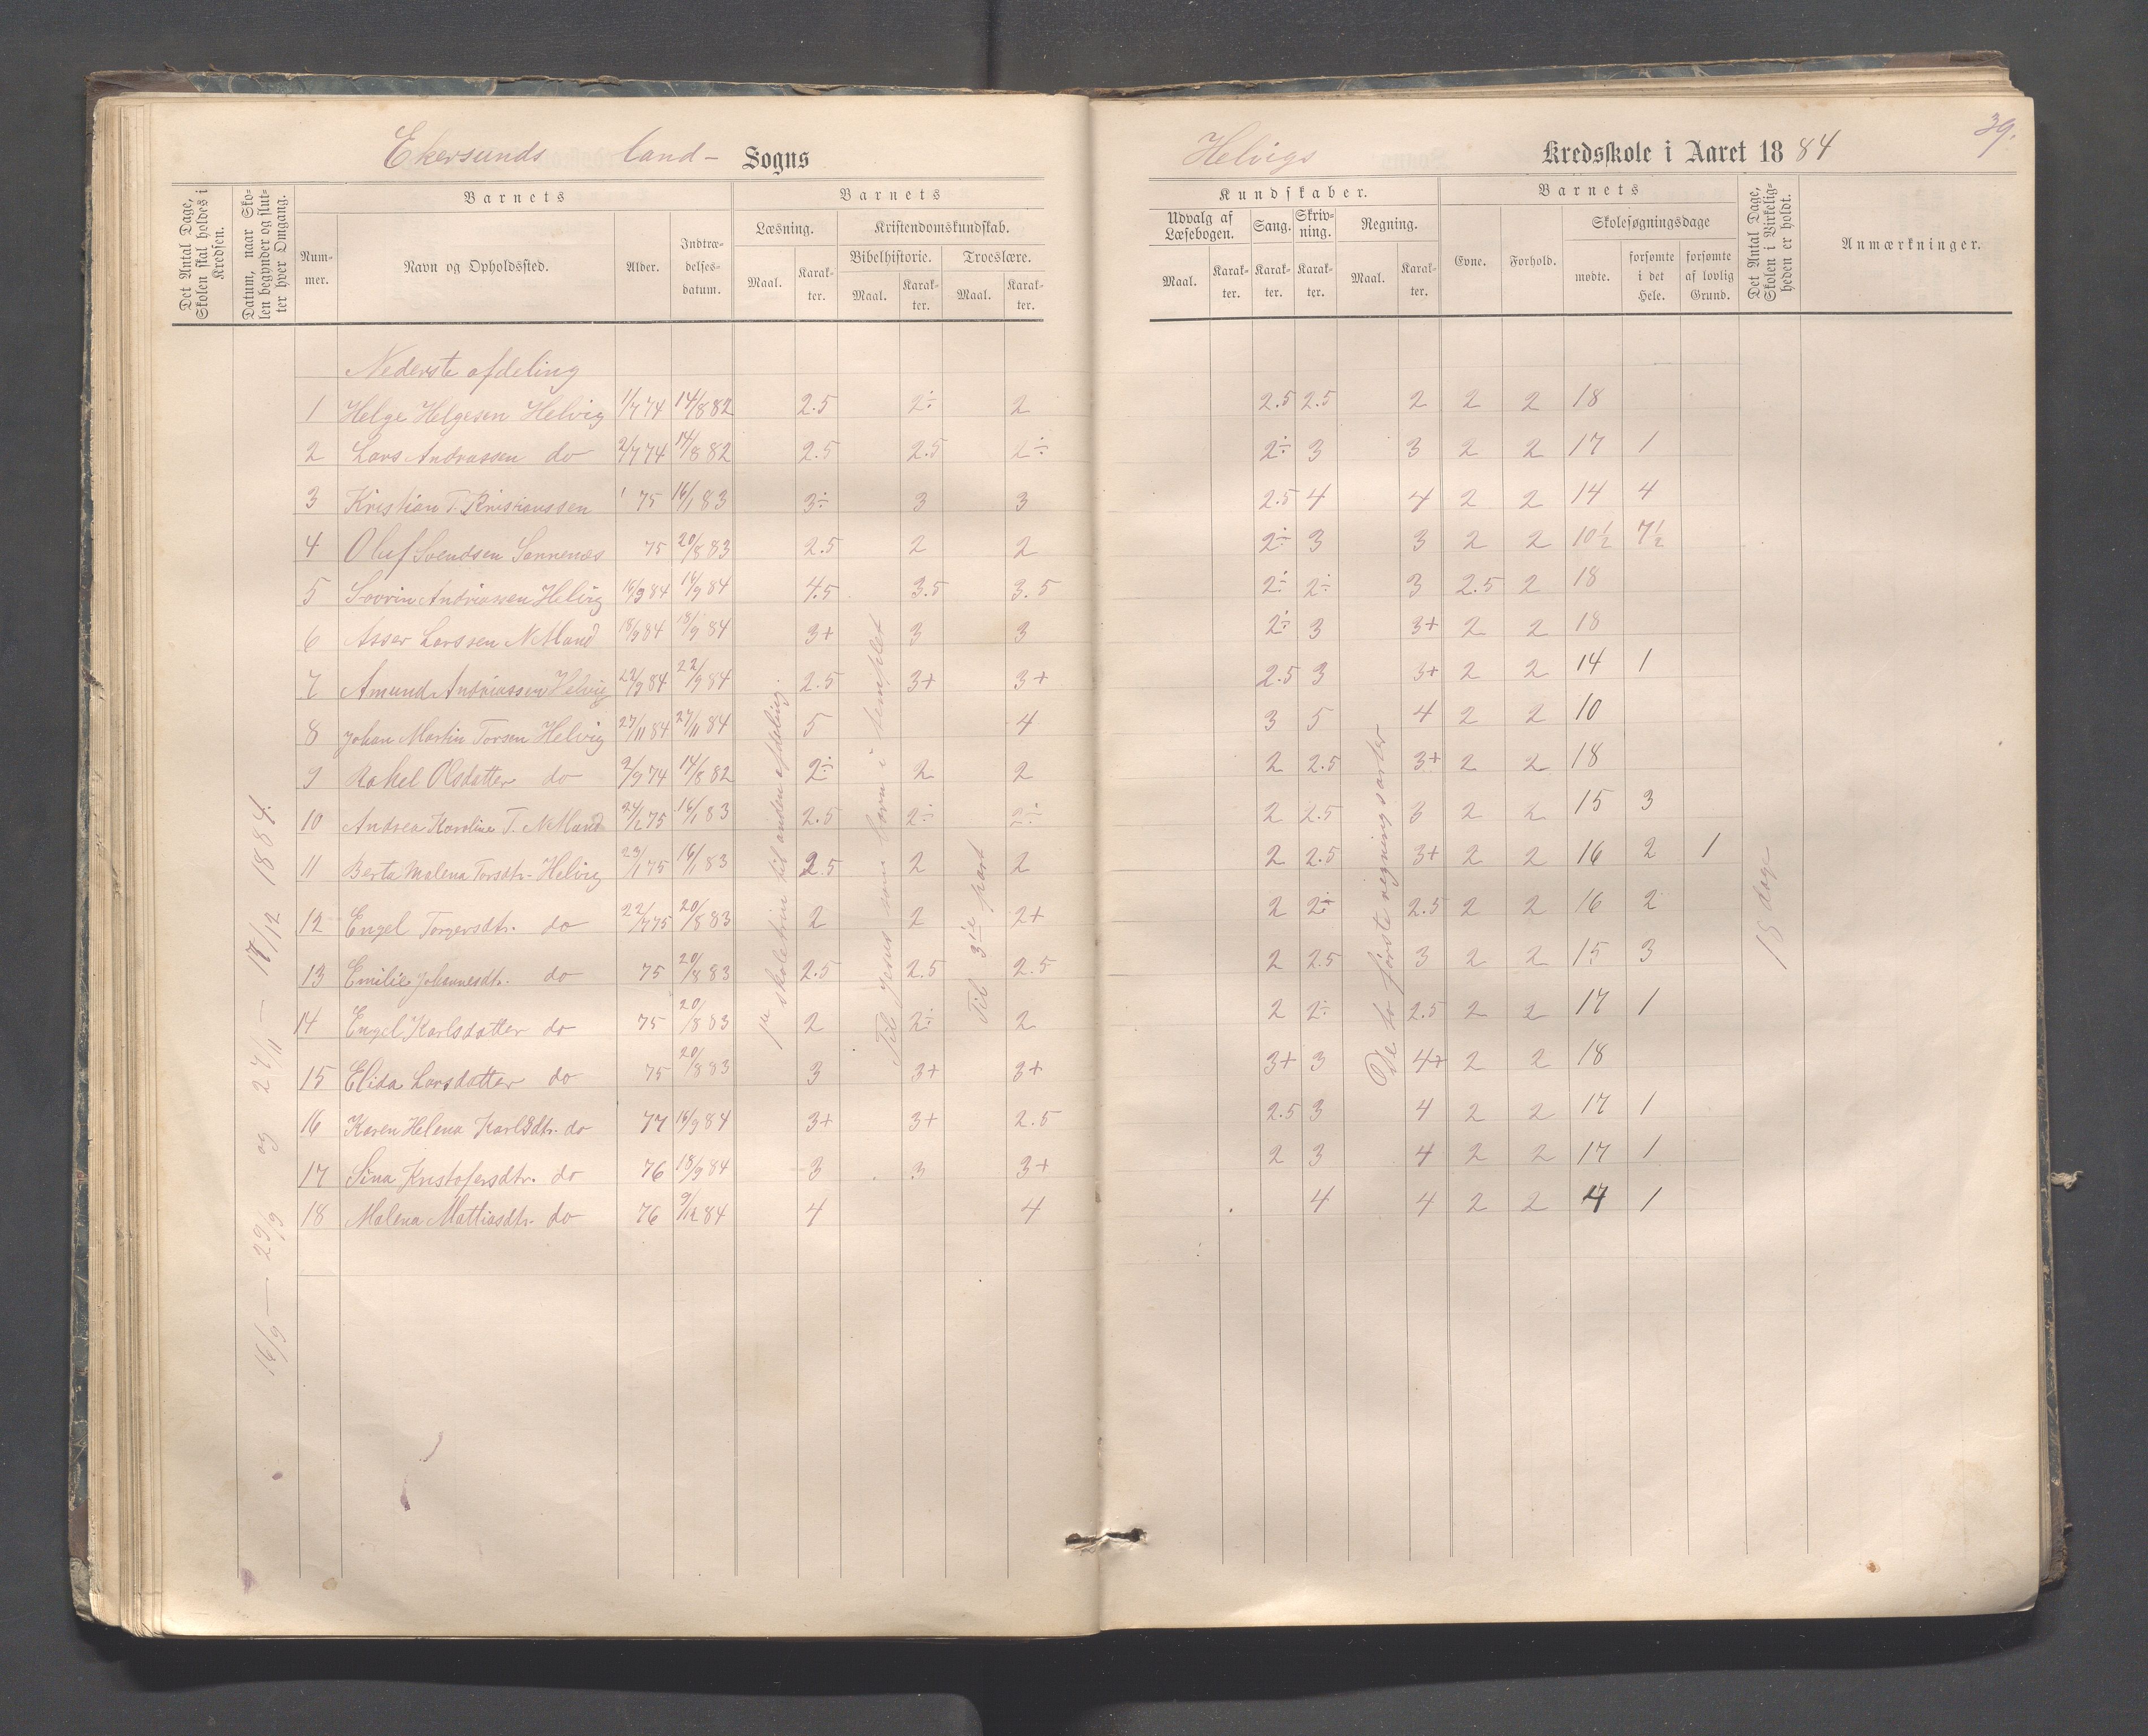 Ekersunds land- Sogns
Helvigs Kredsskole i Aaret 1884
39.
Det Antal Dage, Skolen skal holdes i Kredsen.
Datum, naar Skolen begynder og slutter hver Omgang.
Barnets
Nummer.
Navn og Opholdssted.
Alder.
Indtrædelsesdatum.
Barnets
Læsning.
Maal.
Karakter.
Kristendomskundskab.
Bibelhistorie.
Maal.
Karakter.
Troeslære.
Maal.
Karakter.
Kundskaber.
Udvalg af Læsebogen.
Maal.
Karakter.
Sang.
Karakter.
Skrivning.
Karakter.
Regning.
Maal.
Karakter.
Barnets
Evne.
Forhold.
Skolesøgningsdage
mødte.
forsømte i det Hele.
forsømte af lovlig Grund.
Det Antal Dage, Skolen i Virkeligheden er holdt.
Anmærkninger.
Nederste afdeling
1 Helge Helgesen Helvig 1/7 74 14/8 82 2.5 2÷ 2 2.5 2.5 2 2 2 18
2 Lars Andreassen do 2/7 74 14/8 82 2.5 2.5 2÷ 2÷ 3 3 2 2 17 1
3 Kristian T. Kristianssen 75 16/1 83 3÷ 3 3 2.5 4 4 2 2 14 4
4 Oluf Svendsen 75 20/8 83 2.5 2 2 2÷ 3 3 2 2 10½ 7½
5 Sovrin Andreassen Helvig 16/9 84 16/9 84 4.5 3.5 3.5 2÷ 2÷ 3 2.5 2 18
6 Asser Larssen N Mland 18/9 84 18/9 84 3+ 3 3 2÷ 3 3+ 2 2 18
7 Amund Andreassen Helvig 22/9 84 22/9 84 2.5 3+ 3+ 2.5 3 3+ 2 2 14 1
8 Johan Martin Torsen Helvig 27/11 84 27/11 84 5 4 3 5 4 2 2 10
9 Rakel Olsdatter do 2/9 74 14/8 82 2÷ 2 2 2 2.5 3+ 2 2 18
10 Andrea Karoline T. N Mland 24/2 75 16/1 83 2.5 2÷ 2÷ 2 2.5 3 2 2 15 3
11 Berta Malena Torsdtr. Helvig 23/1 75 16/1 83 2.5 2 2 2 2.5 3+ 2 2 16 2 1
12 Engel Torgersdtr. do 22/7 75 20/8 83 2 2 2+ 2 2÷ 2.5 2 2 16 2
13 Emilie Johannesdtr. do 75 20/8 83 2.5 2.5 2.5 2 2.5 3 2 2 15 3
14 Engel Karlsdatter do 75 20/8 83 2 2÷ 2 2 2÷ 2.5 2 2 17 1
15 Elida Larsdatter do 75 20/8 83 3 3+ 3+ 3+ 3 4+ 2 2 18
16 Karen Helena Karlsdtr. do 77 16/9 84 3+ 3+ 2.5 2.5 3 4 2 2 17 1
17 Sina Kristofersdtr. do 76 18/9 84 3 3 3+ 2 3 4 2 2 17 1
18 Malena Mattiasdtr. do 76 9/12 84 4 4 4 4 2 2 1
16/9 — 29/9 og 27/11 — 17/12 1884.
skoletrin til anden afdeling.
Til Jesus som barn i templet
Til 3die part
De to første regningsarter
18 dage